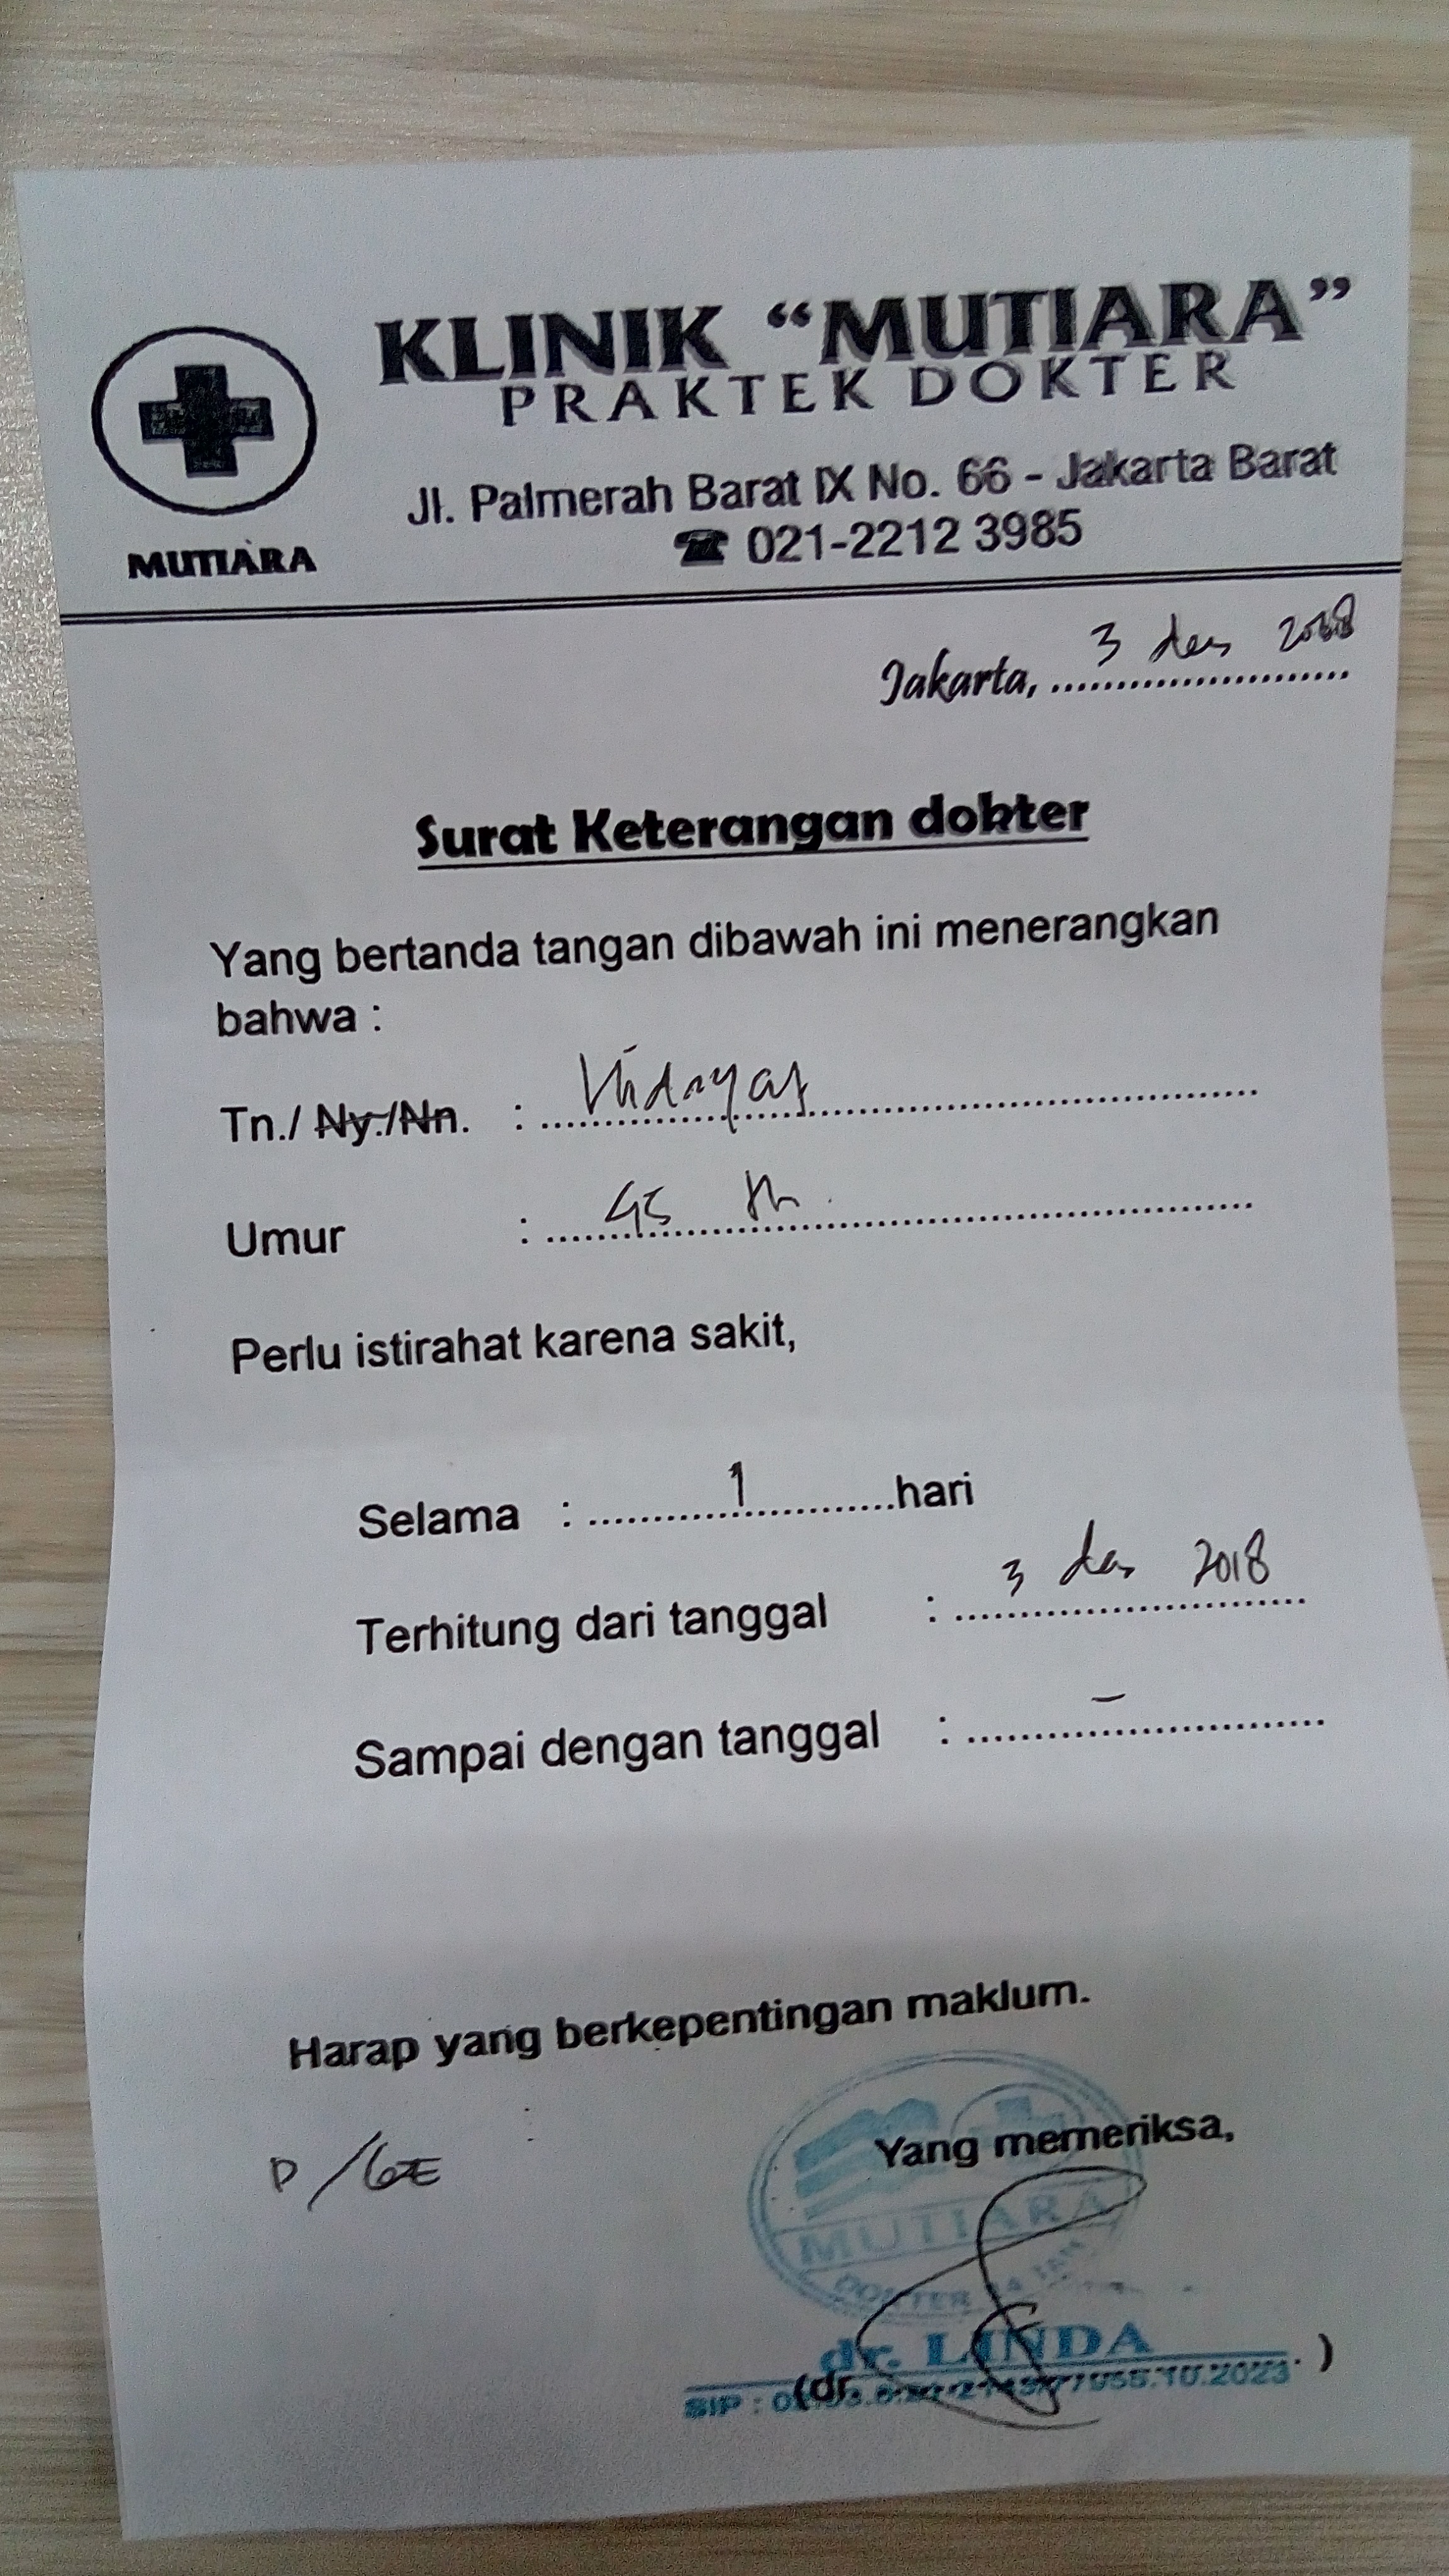 KLINIK “MUTIARA”
PRAKTEK DOKTER
Jl. Palmerah Barat IX No. 66 - Jakarta Barat
☎ 021-2212 3985
MUTIARA
Jakarta, 3 des 2018
Surat Keterangan dokter
Yang bertanda tangan dibawah ini menerangkan
bahwa :
Tn./ Ny./Nn. : Hidayat
Umur : 45 th
Perlu istirahat karena sakit,
Selama : 1 hari
Terhitung dari tanggal : 3 des 2018
Sampai dengan tanggal : -
Harap yang berkepentingan maklum.
D / GE
Yang memeriksa,
MUTIARA
DOKTER
dr. LINDA
(dr. )
SIP :